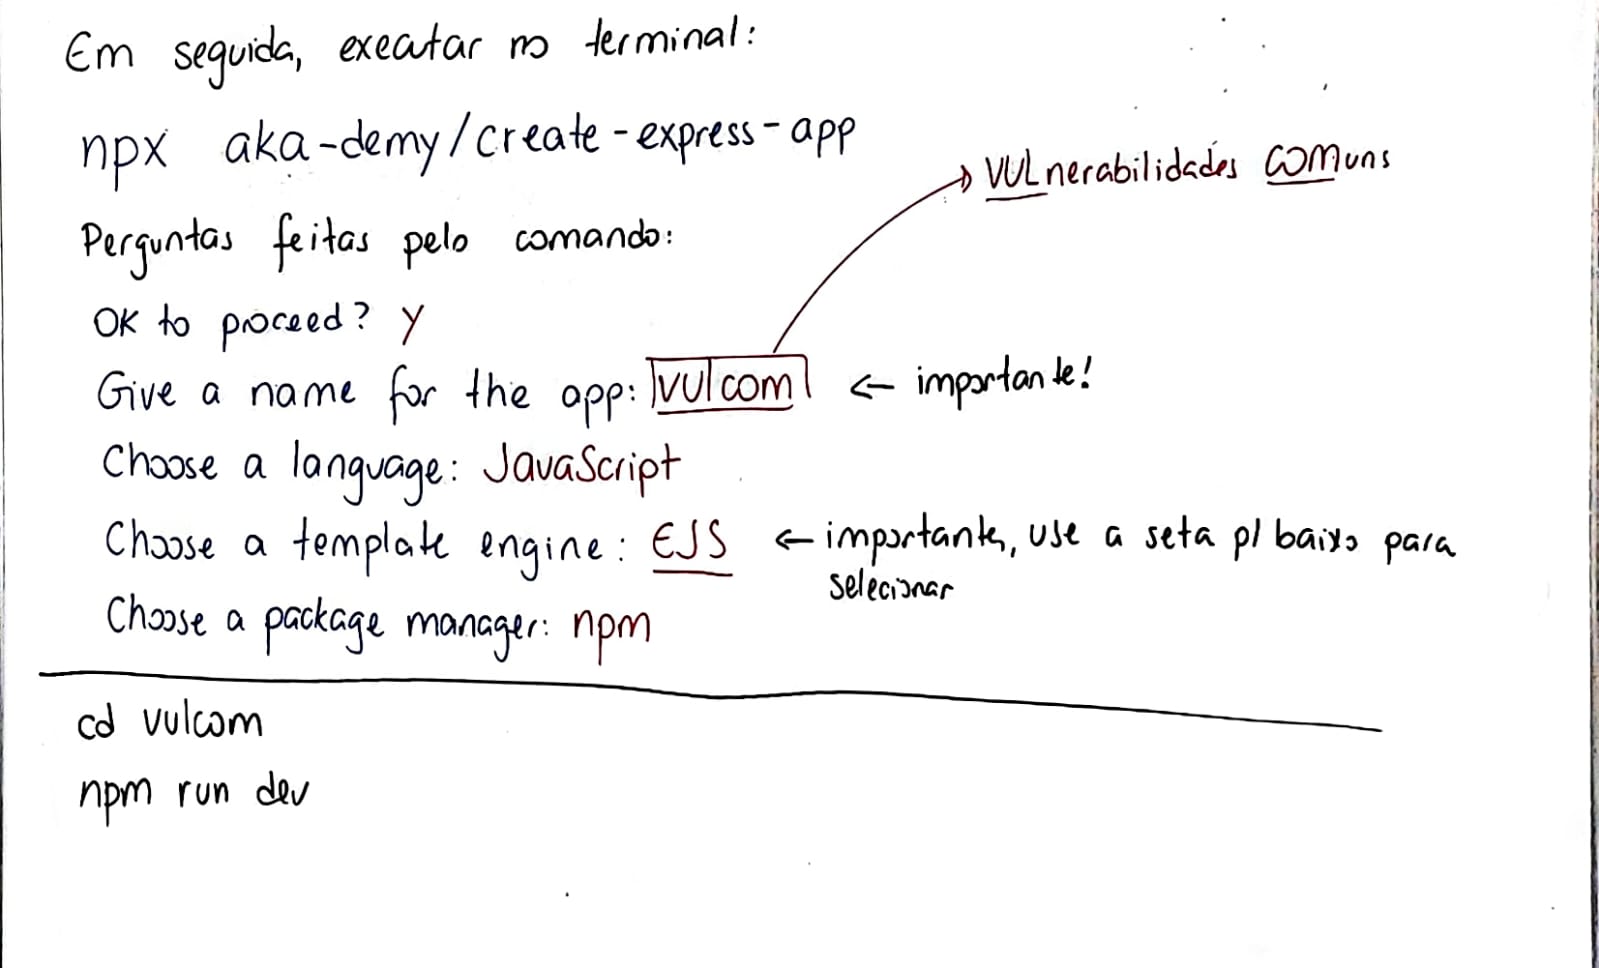 Em seguida, executar no terminal:
npx aka-demy/create-express-app
→ VULnerabilidades COMuns
Perguntas feitas pelo comando:
OK to proceed? y
Give a name for the app: vulcom ← importante!
Choose a language: JavaScript
Choose a template engine: EJS ← importante, use a seta p/ baixo para
selecionar
Choose a package manager: npm
cd vulcom
npm run dev